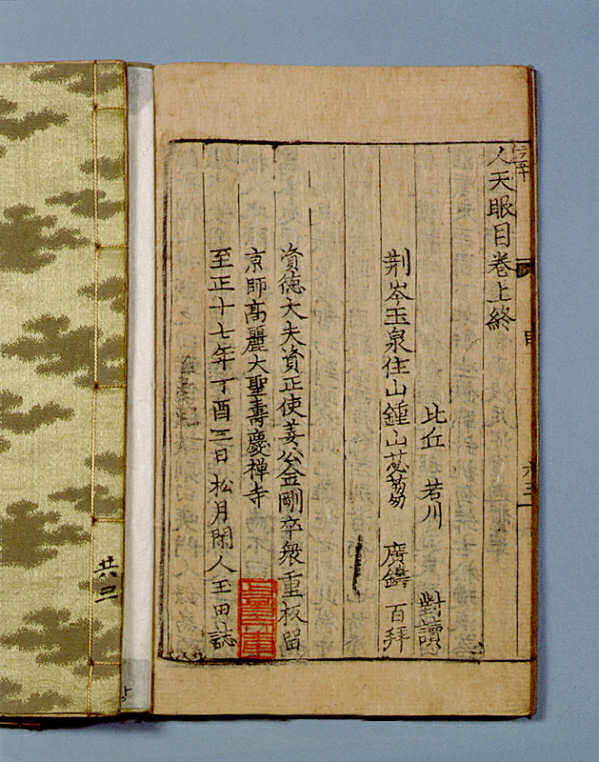 人天眼目卷上終
比丘 若川 對讀
荆岑玉泉住山鍾山苾蒭 廣鑄 百拜
資德大夫資正使姜公金剛卒衆重板留
京師高麗大聖壽慶禅寺
至正十七年丁酉三日松月閑人王田誌
共二